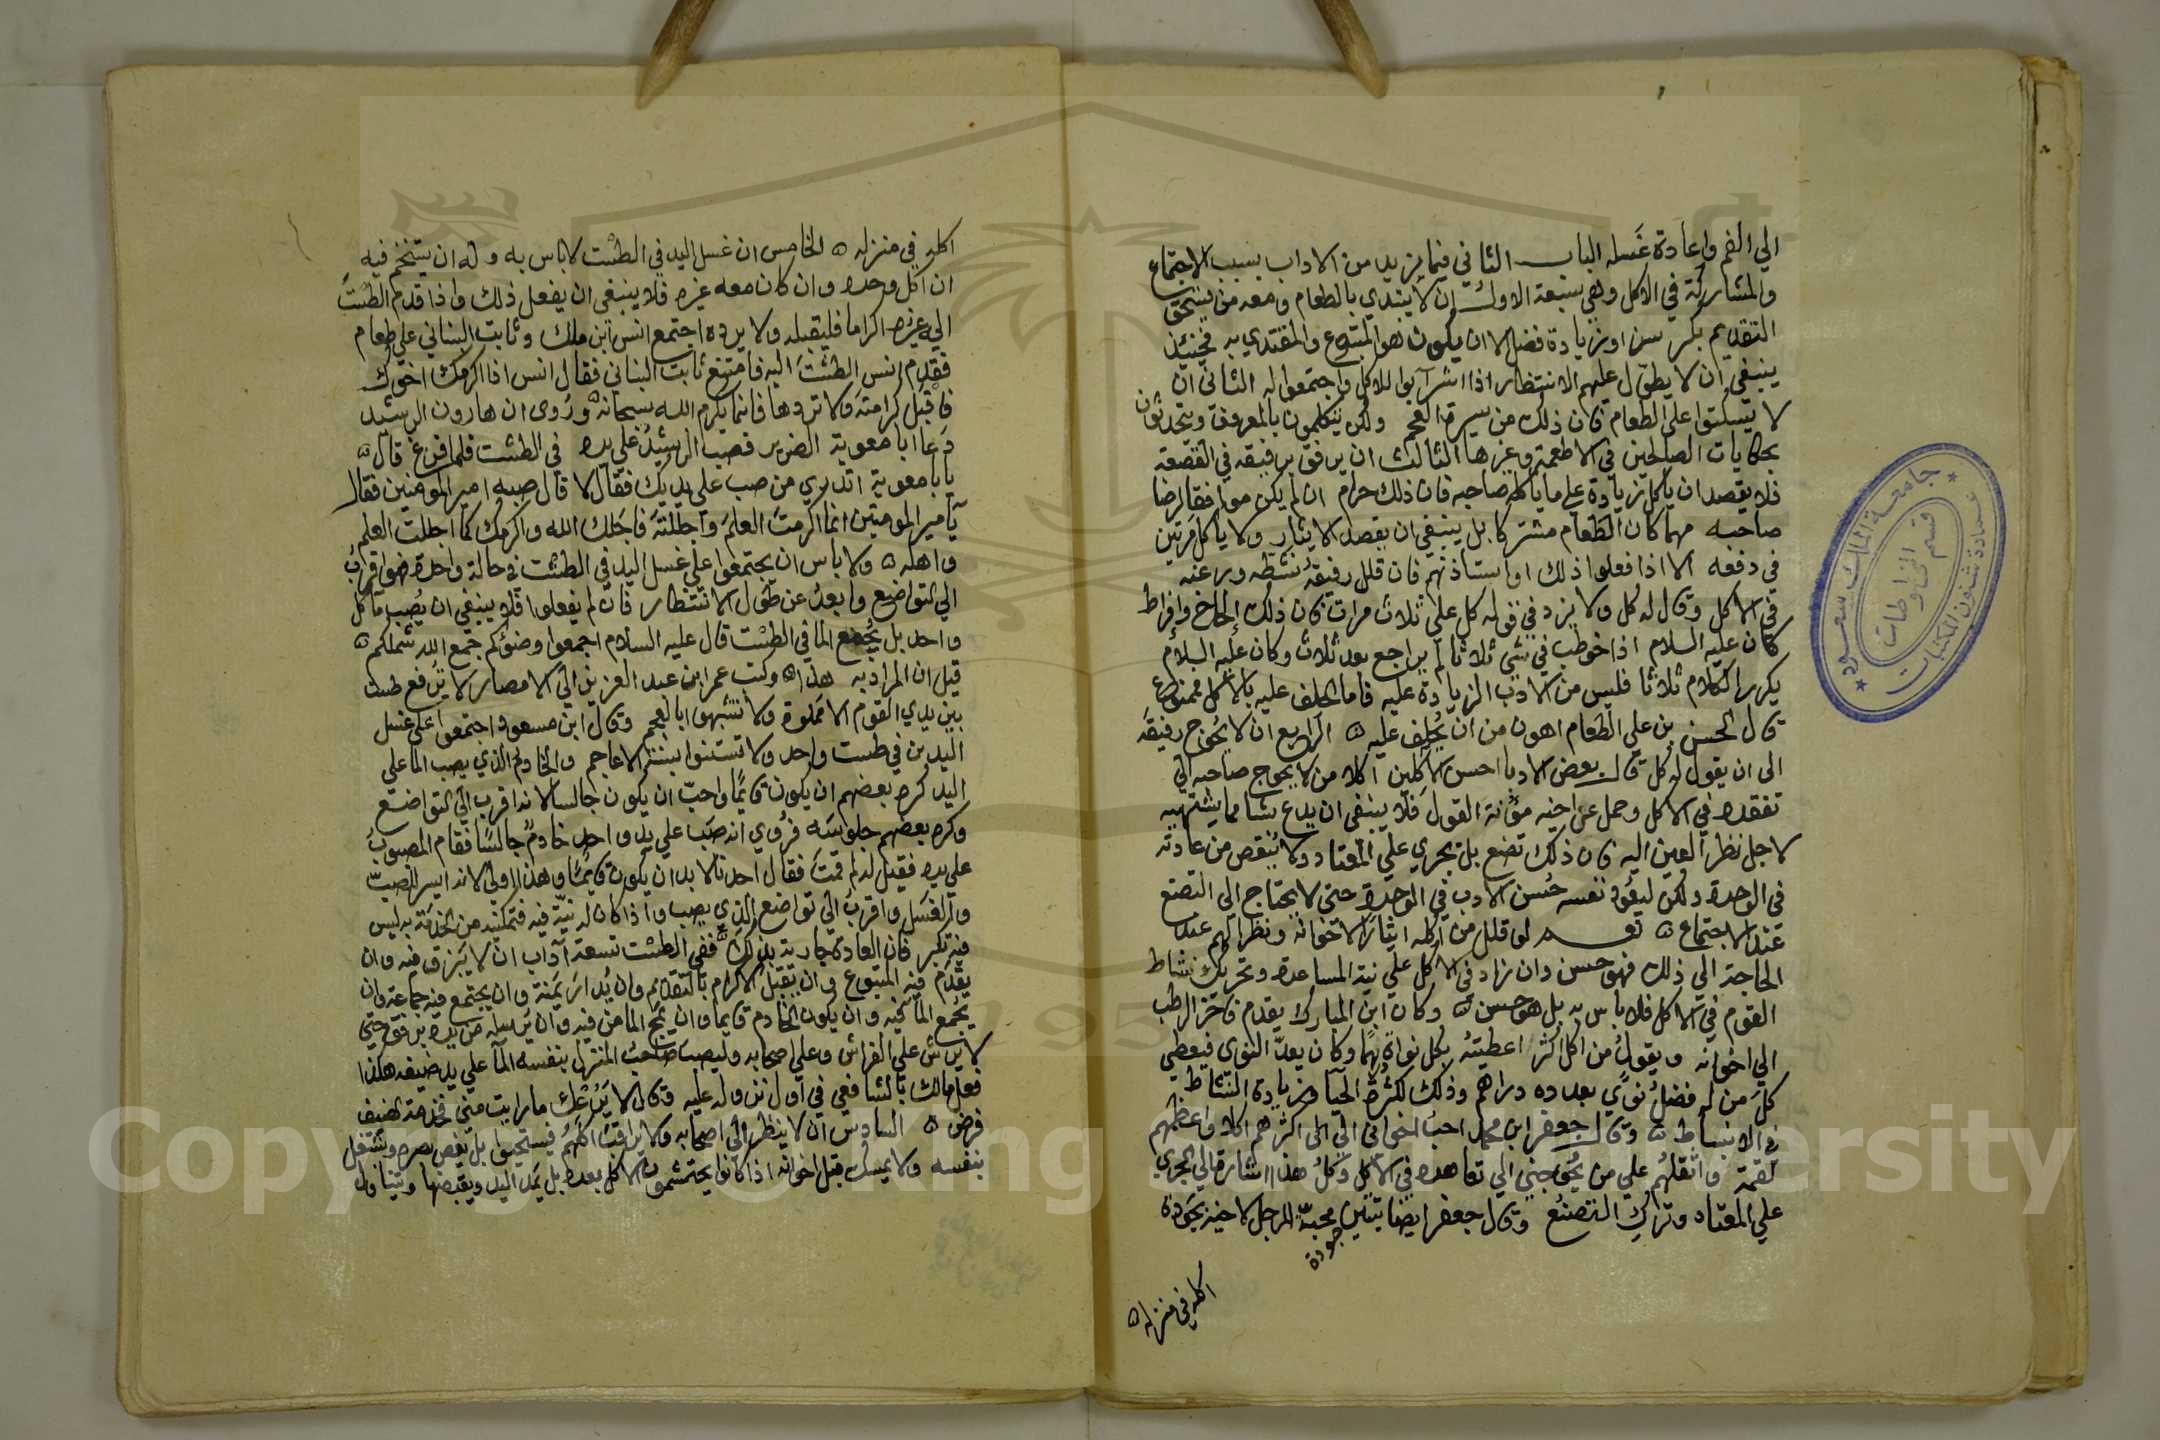 الي الفم واعادة غسله الباب الثاني فيما يزيد من الاداب بسبب الاجتماع
والمشاركة في الاكل وهي سبعة الاول ان لا يبتدي بالطعام ومعه من يستحق
التقديم بكبر سن او زيادة فضل الا ان يكون هو المتبوع والمقتدي به فحينئذ
ينبغي ان لا يطول عليهم الانتظار اذا اشرآبوا للاكل واجتمعوا له الثاني ان
لا يتسكتوا علي الطعام فان ذلك من سيرة العجم ولكن يتكلمون بالمعروف ويتحدثون
بحكايات الصالحين في الاطعمة وغيرها الثالث ان يرفق برفيقه في القصعة
فلا يقصد ان ياكل زيادة علي ما ياكله صاحبه فان ذلك حرام ان لم يكن موافقا لرضا
صاحبه مهما كان الطعام مشتركا بل ينبغي ان يقصد الايثار ولا ياكل مرتين
في دفعه الا اذا فعلوا ذلك او استاذنهم فان قلل رفيقه نشطه ورغبه
في الاكل وقال له كل ولا يزد في قوله كل علي ثلاث مرات فان ذلك إلحاح وإفراط
كان عليه السلام اذا خوطب في شي ثلاثا لم يراجع بعد ثلاث وكان عليه السلام
يكرر الكلام ثلاثا فليس من الادب الزيادة عليه فاما الحلف عليه بالاكل فممنوع
قال الحسن بن علي الطعام اهون من ان يُحلف عليه ه الرابع ان لا يحوج رفيقه
الى ان يقول له كل قال بعض الادبا احسن الاكلين اكلا من لا يحوج صاحبه الي
تفقده في الاكل وحمل عن اخيه مؤنة القول فلا ينبغي ان يدع شيا مما يشتهيه
لاجل نظر العين اليه فان ذلك تصنع بل يجري علي المعتاد ولا ينقص من عادته
في الوحدة ولكن ليعود نفسه حُسن الادب في الوحدة حتى لا يحتاج الي التصنع
عند الاجتماع ه نعم لو قلل من اكله ايثارا لاخوانه ونظرا لهم عند
الحاجة الي ذلك فهو حسن وان زاد في الاكل علي نية المساعدة وتحريك نشاط
القوم في الاكل فلا باس به بل هو حسن ه وكان ابن المبارك يقدم فاخر الرطب
الي اخوانه ويقول من اكل اكثر اعطيته بكل نواة درهما وكان يعد النوى فيعطي
كل من له فضل نوًي بعدده دراهم وذلك لكثرة الحيا وزيادة النشاط
في الانبساط ه وقال جعفر ابن محمد احب اخواني الي الى اكثرهم اكلا واعظمهم
لقمة واثقلهم علي من يحوجني الي تعاهده في الاكل وكل هذا اشارة الي الجري
علي المعتاد وترك التصنع وقال جعفر ايضا تتبين محبة الرجل لاخيه بجودة
جودة
اكله في منزله ه
اكله في منزله ه الخامس ان غسل اليد في الطشت لا باس به وله ان يتنخم فيه
ان اكل وحده وان كان معه غيره فلا ينبغي ان يفعل ذلك واذا قدم الطشت
اليه غيره اكراما فليقبله ولا يرده اجتمع انس ابن ملك وثابت البناني علي طعام
فقدم انس الطشت اليه فامتنع ثابت البناني فقال انس اذا اكرمك اخوك
فاقبل كرامته ولا تردها فانما يكرم الله سبحانه ورُوى ان هارون الرشيد
دعا ابا معوية الضرير فصب الرشيد علي يده في الطشت فلما فرغ قال ه
يابا معوية اتدري من صب علي يديك فقال لا قال صبه امير المومنين فقال
يآمير المومنين انما اكرمت العلم واجللته فاجلك الله واكرمك كما اجللت العلم
واهله ه ولا باس ان يجتمعوا علي غسل اليد في الطشت في حالة واحدة فهو اقرب
الي التواضع وابعد عن طول الانتظار فان لم يفعلوا فلا ينبغي ان يُصب ما كل
واحد بل يُجمع الما في الطشت قال عليه السلام اجمعوا وضؤكم جمع الله شملكم ه
قيل ان المراد به هذا ه وكتب عمر ابن عبد العزيز الي الامصار لا يرفع طست
بين يدي القوم الا مملوة ولا تشبهوا بالعجم وقال ابن مسعود اجتمعوا علي غسل
اليدين في طست واحد ولا تستنوا بسنة الاعاجم والخادم الذي يصب الما علي
اليد كره بعضهم ان يكون قائما واحب ان يكون جالسا لانه اقرب الي التواضع
وكره بعضهم جلوسه فرُوي انه صب علي يد واحد خادمٌ جالسًا فقام المصبوب
علي يده فقيل له لم قمت فقال احدنا لا بد ان يكون قائما وهذا اولي لانه ايسر للصب
والغسل واقرب الي تواضع الذي يصب واذا كان له نيّة فيه فتمكينه من الخدمة به ليس
فيه تكبر فان العادة جارية بذلك ففي الطشت تسعة آداب ان لا يبزق فيه وان
يقدم فيه المتبوع وان يقبل الاكرام بالتقديم وان يُدار يمنة وان يجتمع فيه جماعة وان
يُجمع الما فيه وان يكون الخادم قايما وان يمج الما من فيه وان يرسله من يده برفق حتي
لا يرش علي الفراش وعلي اصحابه وليصب صاحب المنزل بنفسه المآ علي يد ضيفه هكذا
فعل مالك بالشافعي في اول نزوله عليه وقال لا يرعك ما رايت مني فخدمة الضيف
فرض ه السادس ان لا ينظر الي اصحابه ولا يراقب اكلهم فيستحيوا بل يغض بصره ويشتغل
بنفسه ولا يمسك قبل اخوانه اذا كانوا يحتشمون الاكل بعده بل يمد اليد ويقبضها ويتناول
جامعة الملك سعود
عمادة شئون المكتبات
قسم المخطوطات
Copyright © King Saud University
1957